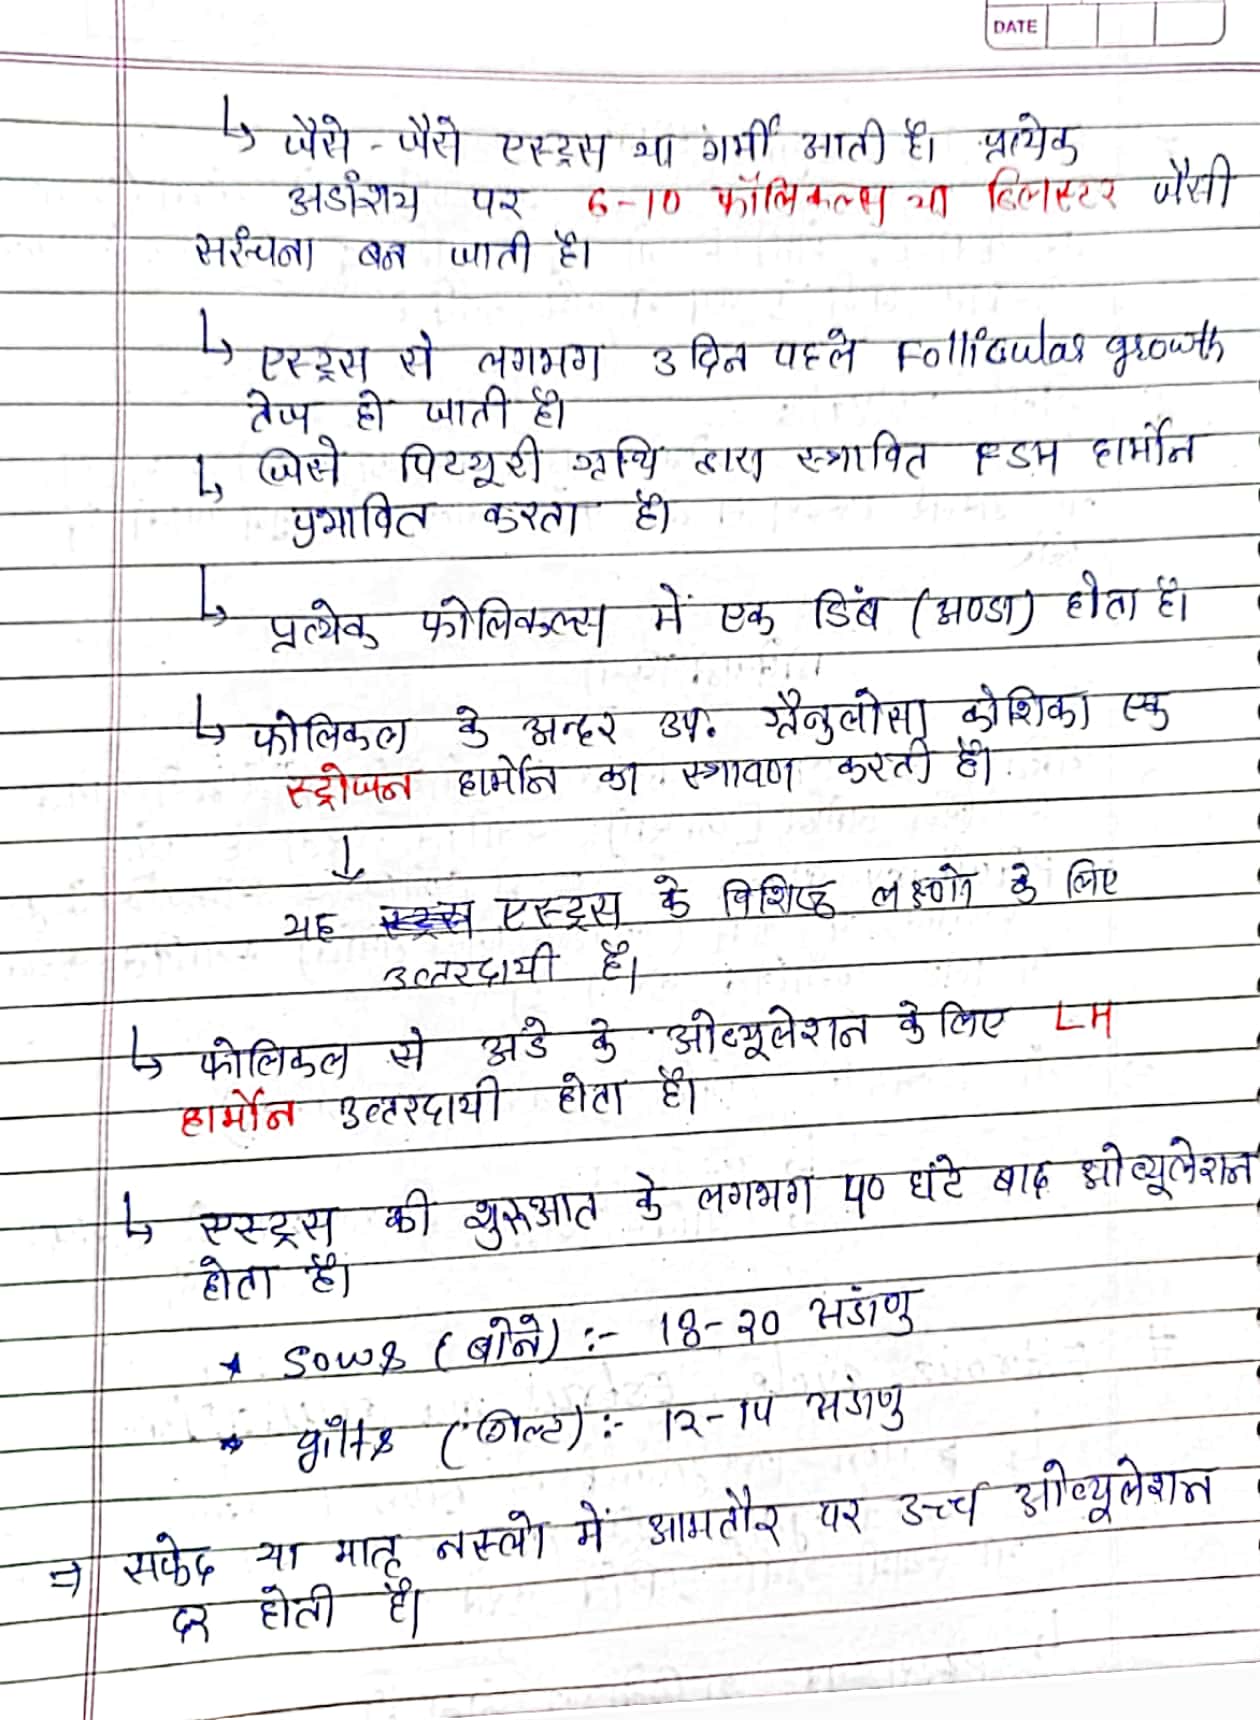 DATE
↳ जैसे - जैसे एस्ट्रस या गर्मी आती है। प्रत्येक
अडांशय पर 6-10 फॉलिकल्स या ब्लिस्टर जैसी
सरंचना बन जाती है।
↳ एस्ट्रस से लगभग 3 दिन पहले Follicular growth
तेज हो जाती है।
↳ जिसे पिट्यूरी ग्रन्थि द्वारा स्त्रावित FSH हार्मोन
प्रभावित करता है।
↳ प्रत्येक फोलिकल्स में एक डिंब (अण्डा) होता है।
↳ फोलिकल के अन्दर उप. ग्रैनुलोसा कोशिका एक
स्ट्रोजन हार्मोन का स्त्रावण करती है।
↓
यह एस्ट्रस के विशिष्ठ लक्ष्णों के लिए
उत्तरदायी है।
↳ फोलिकल से अडे के ओव्यूलेशन के लिए LH
हार्मोन उत्तरदायी होता है।
↳ एस्ट्रस की शुरुआत के लगभग 40 घंटे बाद ओव्यूलेशन
होता है।
★ Sows (बोने) :- 18-20 अडांणु
★ gilts (गिल्ट) :- 12-14 अडांणु
⇒ सफेद या मातृ नस्लो में आमतौर पर उच्च ओव्यूलेशन
दर होती है।